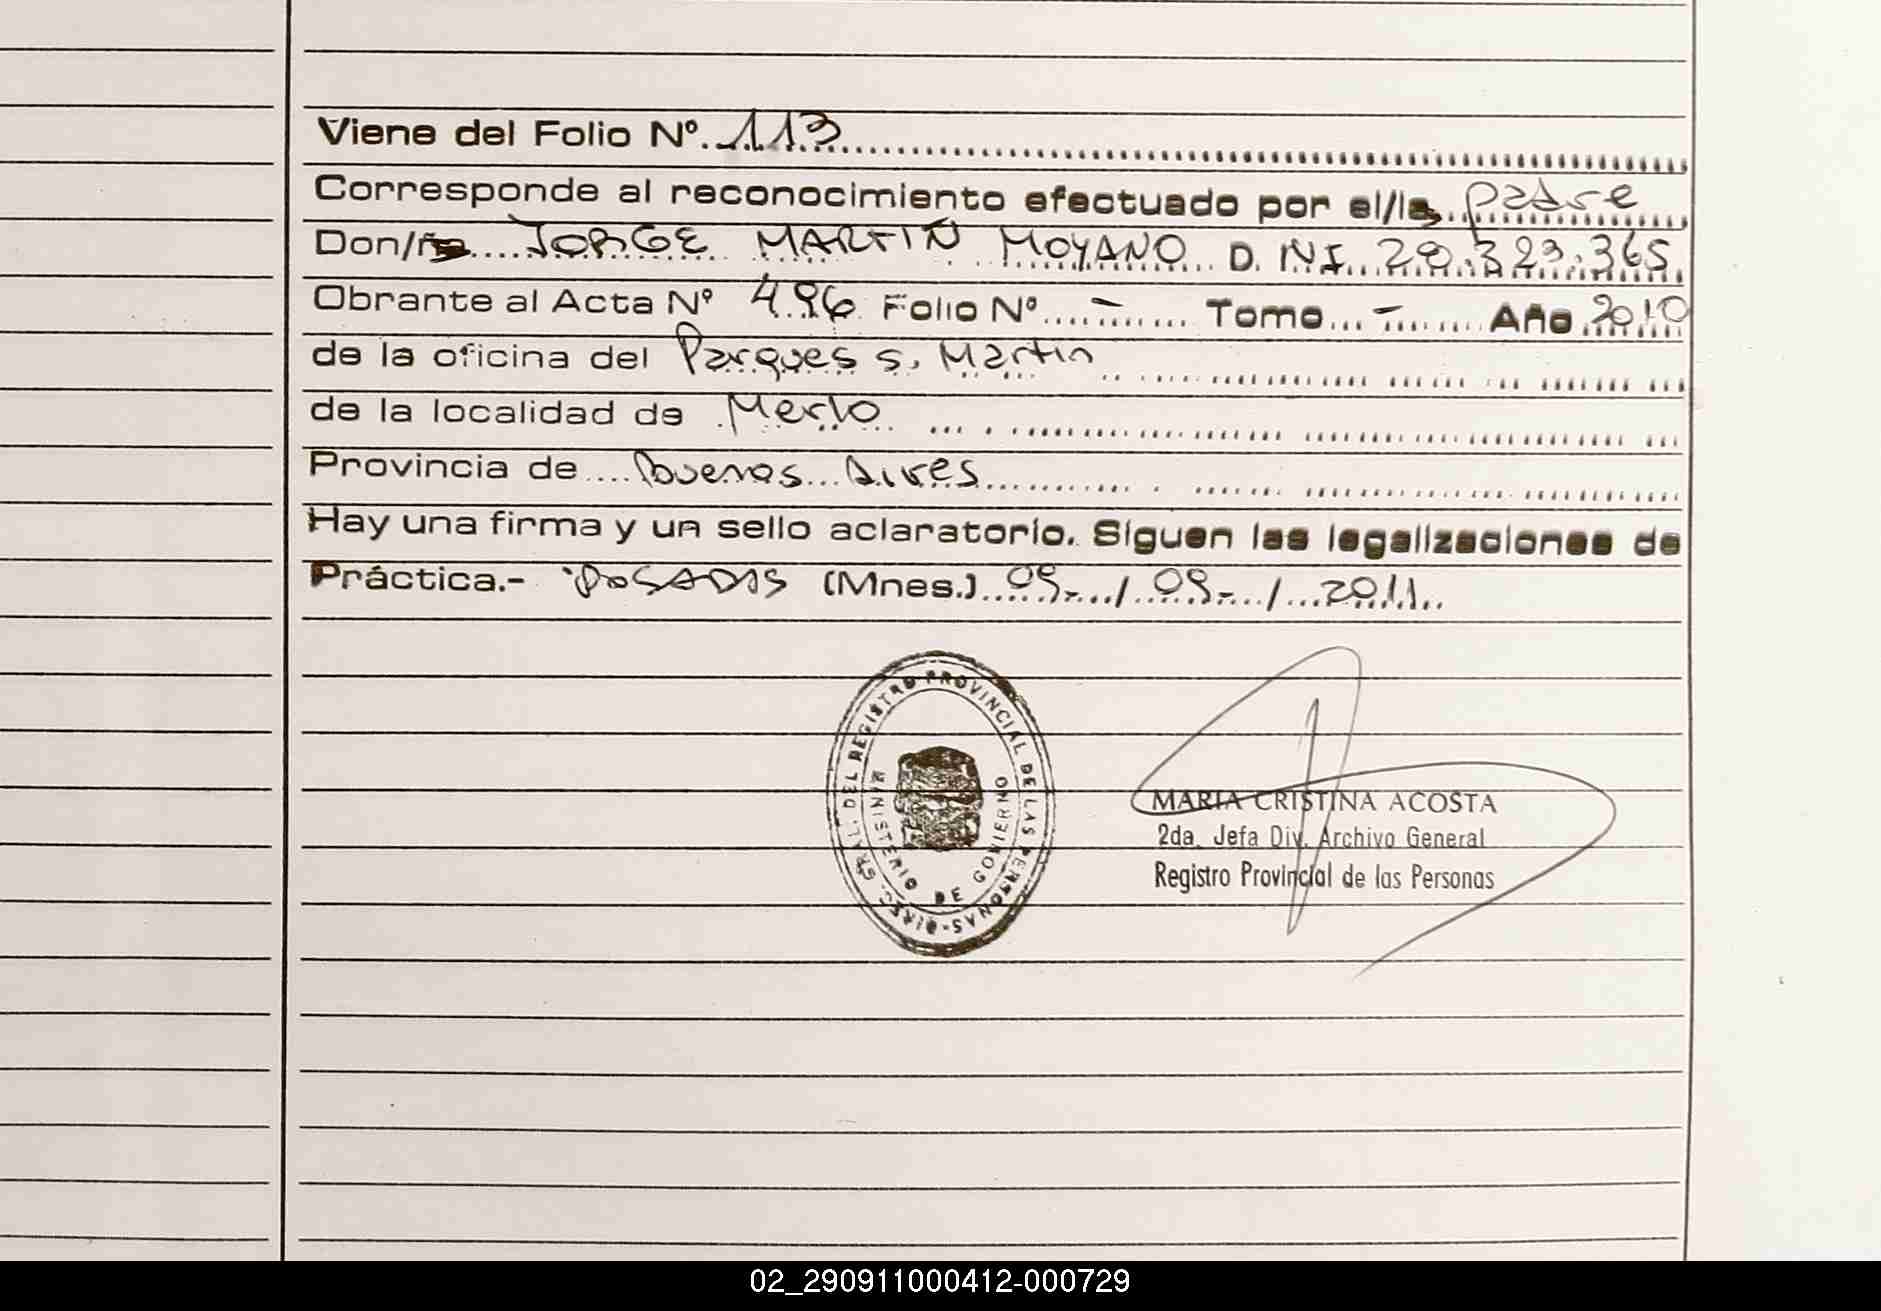 Viene del Folio Nº. 113
Corresponde al reconocimiento efectuado por el/la padre
Don/ña JORGE MARTIN MOYANO D.NI. 29.323.365
Obrante al Acta Nº 496 Folio Nº - Tomo - Año 2010
de la oficina del Parques S. Martin
de la localidad de Merlo
Provincia de Buenos Aires
Hay una firma y un sello aclaratorio. Siguen las legalizaciones de
Práctica.- POSADAS (Mnes.) 09- / 09- / 2011
DIREC. GRAL. DEL REGISTRO PROVINCIAL DE LAS PERSONAS-
MINISTERIO DE GOBIERNO
MARIA CRISTINA ACOSTA
2da. Jefa Div. Archivo General
Registro Provincial de las Personas
02_290911000412-000729